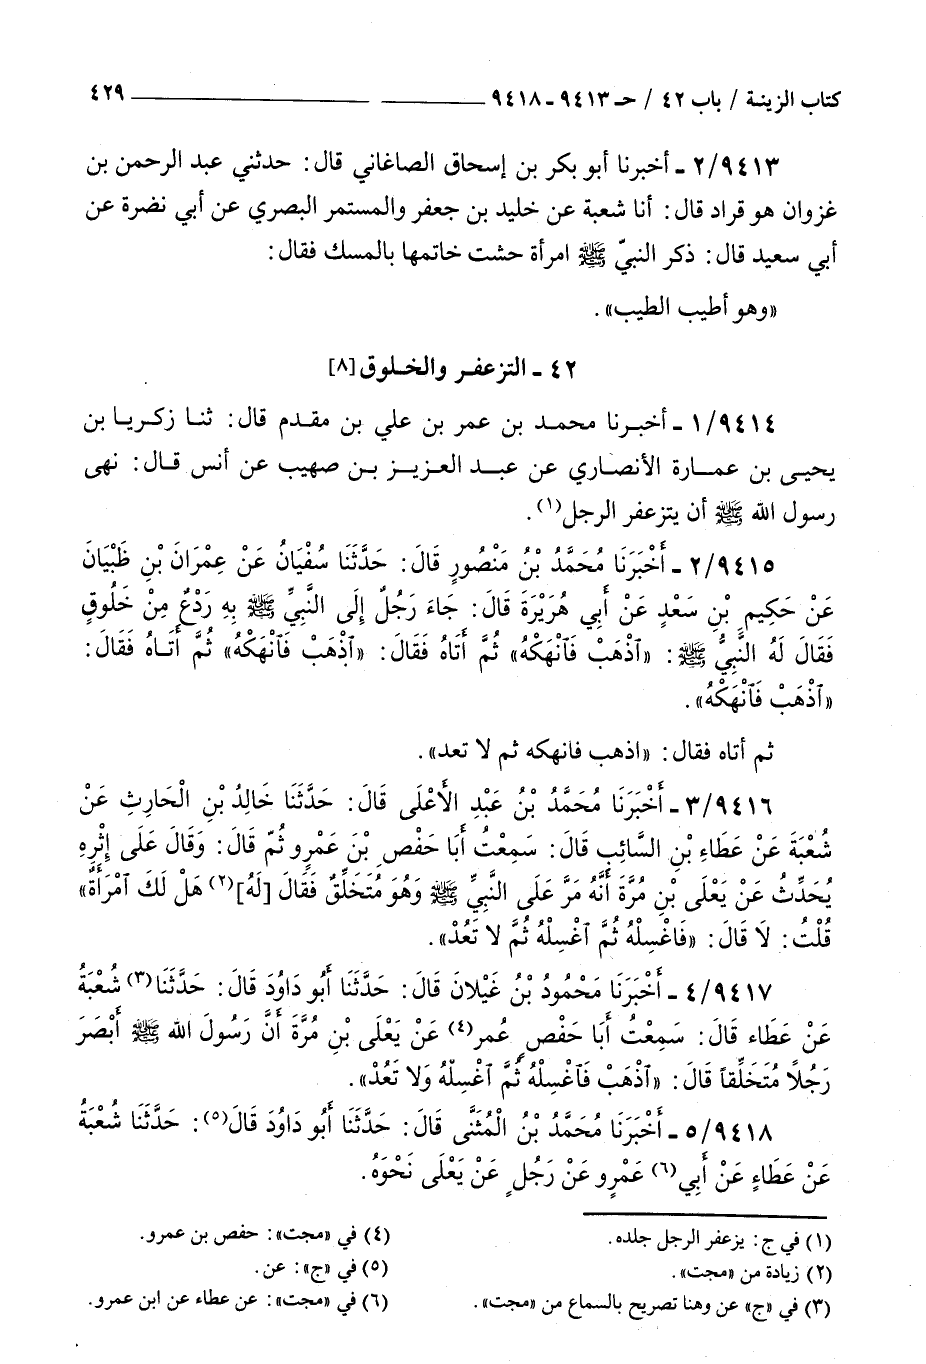 كتاب الزينة / باب ٤٢ / حـ ٩٤١٣ - ٩٤١٨ ٤٢٩
٢/٩٤١٣ - أخبرنا أبو بكر بن إسحاق الصاغاني قال: حدثني عبد الرحمن بن
غزوان هو قراد قال: أنا شعبة عن خليد بن جعفر والمستمر البصري عن أبي نضرة عن
أبي سعيد قال: ذكر النبيّ ﷺ امرأة حشت خاتمها بالمسك فقال:
«وهو أطيب الطيب».
٤٢ - التزعفر والخلوق [٨]
١/٩٤١٤ - أخبرنا محمد بن عمر بن علي بن مقدم قال: ثنا زكريا بن
يحيى بن عمارة الأنصاري عن عبد العزيز بن صهيب عن أنس قال: نهى
رسول الله ﷺ أن يتزعفر الرجل(١).
٢/٩٤١٥ - أَخْبَرَنَا مُحَمَّدُ بْنُ مَنْصُورٍ قَالَ: حَدَّثَنَا سُفْيَانُ عَنْ عِمْرَانَ بْنِ ظَبْيَانَ
عَنْ حَكِيمِ بْنِ سَعْدٍ عَنْ أَبِي هُرَيْرَةَ قَالَ: جَاءَ رَجُلٌ إِلَى النَّبِيِّ ﷺ بِهِ رَدْعٌ مِنْ خَلُوقٍ
فَقَالَ لَهُ النَّبِيُّ ﷺ: «ٱذْهَبْ فَٱنْهَكْهُ» ثُمَّ أَتَاهُ فَقَالَ: «ٱذْهَبْ فَٱنْهَكْهُ» ثُمَّ أَتَاهُ فَقَالَ:
«ٱذْهَبْ فَٱنْهَكْهُ».
ثم أتاه فقال: «اذهب فانهكه ثم لا تعد».
٣/٩٤١٦ - أَخْبَرَنَا مُحَمَّدُ بْنُ عَبْدِ الأَعْلَى قَالَ: حَدَّثَنَا خَالِدُ بْنِ الْحَارِثِ عَنْ
شُعْبَةَ عَنْ عَطَاءِ بْنِ السَّائِبِ قَالَ: سَمِعْتُ أَبَا حَفْصِ بْنَ عَمْرٍو ثُمّ قَالَ: وَقَالَ عَلَى إِثْرِهِ
يُحَدِّثُ عَنْ يَعْلَى بْنِ مُرَّةَ أَنَّهُ مَرَّ عَلَى النَّبِيِّ ﷺ وَهُوَ مُتَخَلِّقٌ فَقَالَ [لَهُ](٢) هَلْ لَكَ ٱمْرَأَةٌ»
قُلْتُ: لَا قَالَ: «فَاغْسِلْهُ ثُمَّ ٱغْسِلْهُ ثُمَّ لا تَعُدْ».
٤/٩٤١٧ - أَخْبَرَنَا مَحْمُودُ بْنُ غَيْلَانَ قَالَ: حَدَّثَنَا أَبُو دَاوُدَ قَالَ: حَدَّثَنَا(٣) شُعْبَةُ
عَنْ عَطَاء قَالَ: سَمِعْتُ أَبَا حَفْصٍ عُمر(٤) عَنْ يَعْلَى بْنِ مُرَّةَ أَنَّ رَسُولَ الله ﷺ أَبْصَرَ
رَجُلاً مُتَخَلِّقاً قَالَ: «ٱذْهَبْ فَاغْسِلْهُ ثُمَّ ٱغْسِلْهُ وَلا تَعُدْ».
٥/٩٤١٨ - أَخْبَرَنَا مُحَمَّدُ بْنُ الْمُثَنَّى قَالَ: حَدَّثَنَا أَبُو دَاوُدَ قَالَ(٥): حَدَّثَنَا شُعْبَةُ
عَنْ عَطَاءٍ عَنْ أَبِي(٦) عَمْرٍو عَنْ رَجُلٍ عَنْ يَعْلَى نَحْوَهُ.
(١) في ج: يزعفر الرجل جلده.
(٢) زيادة من «مجت».
(٣) في «ج» عن وهنا تصريح بالسماع من «مجت».
(٤) في «مجت»: حفص بن عمرو.
(٥) في «ج»: عن.
(٦) في «مجت»: عن عطاء عن ابن عمرو.